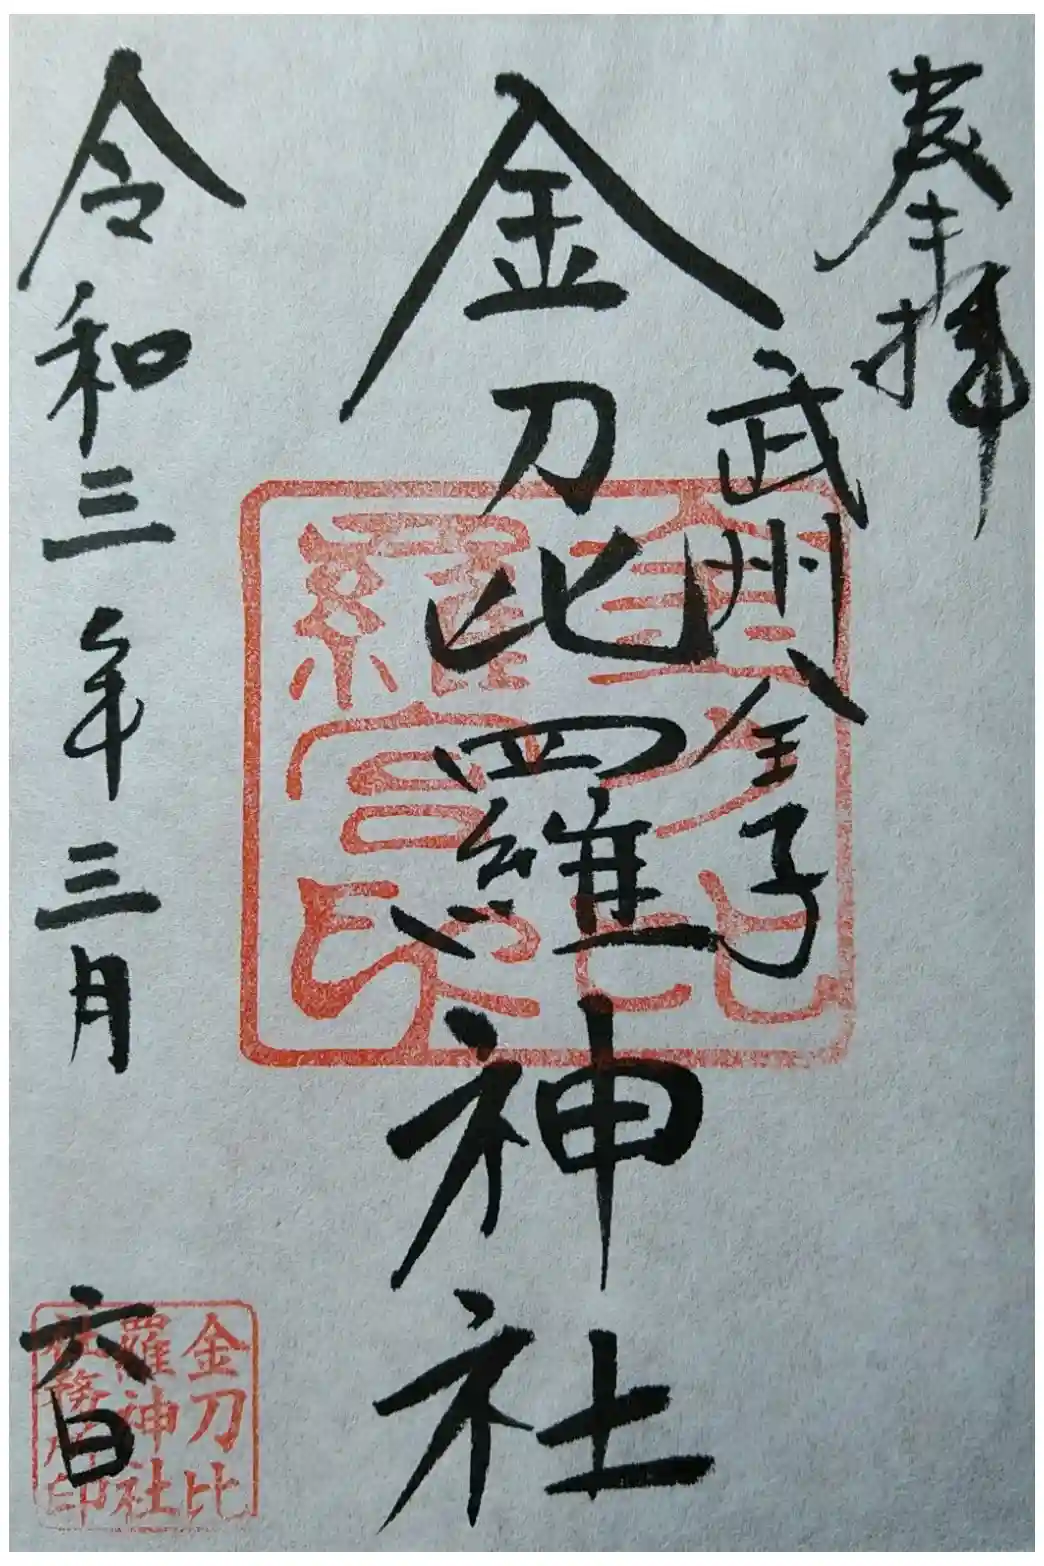 奉拝
武州金子
金刀比羅神社
令和三年三月六日
金刀比
羅宮印
金刀比
羅神社
社務所印